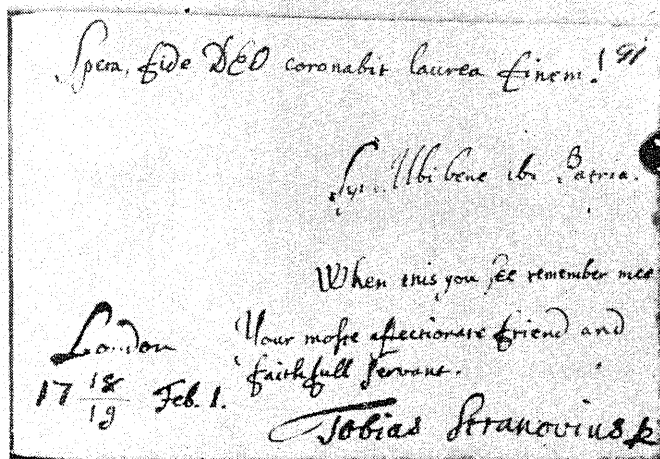 Spera, fide DEO coronabit laurea finem! 191
Sy. Ubi bene ibi Patria.
When this you see remember mee
London Your moste affectionate friend and
faithfull servant.
17 18/19 Feb. 1.
Tobias Stranovius